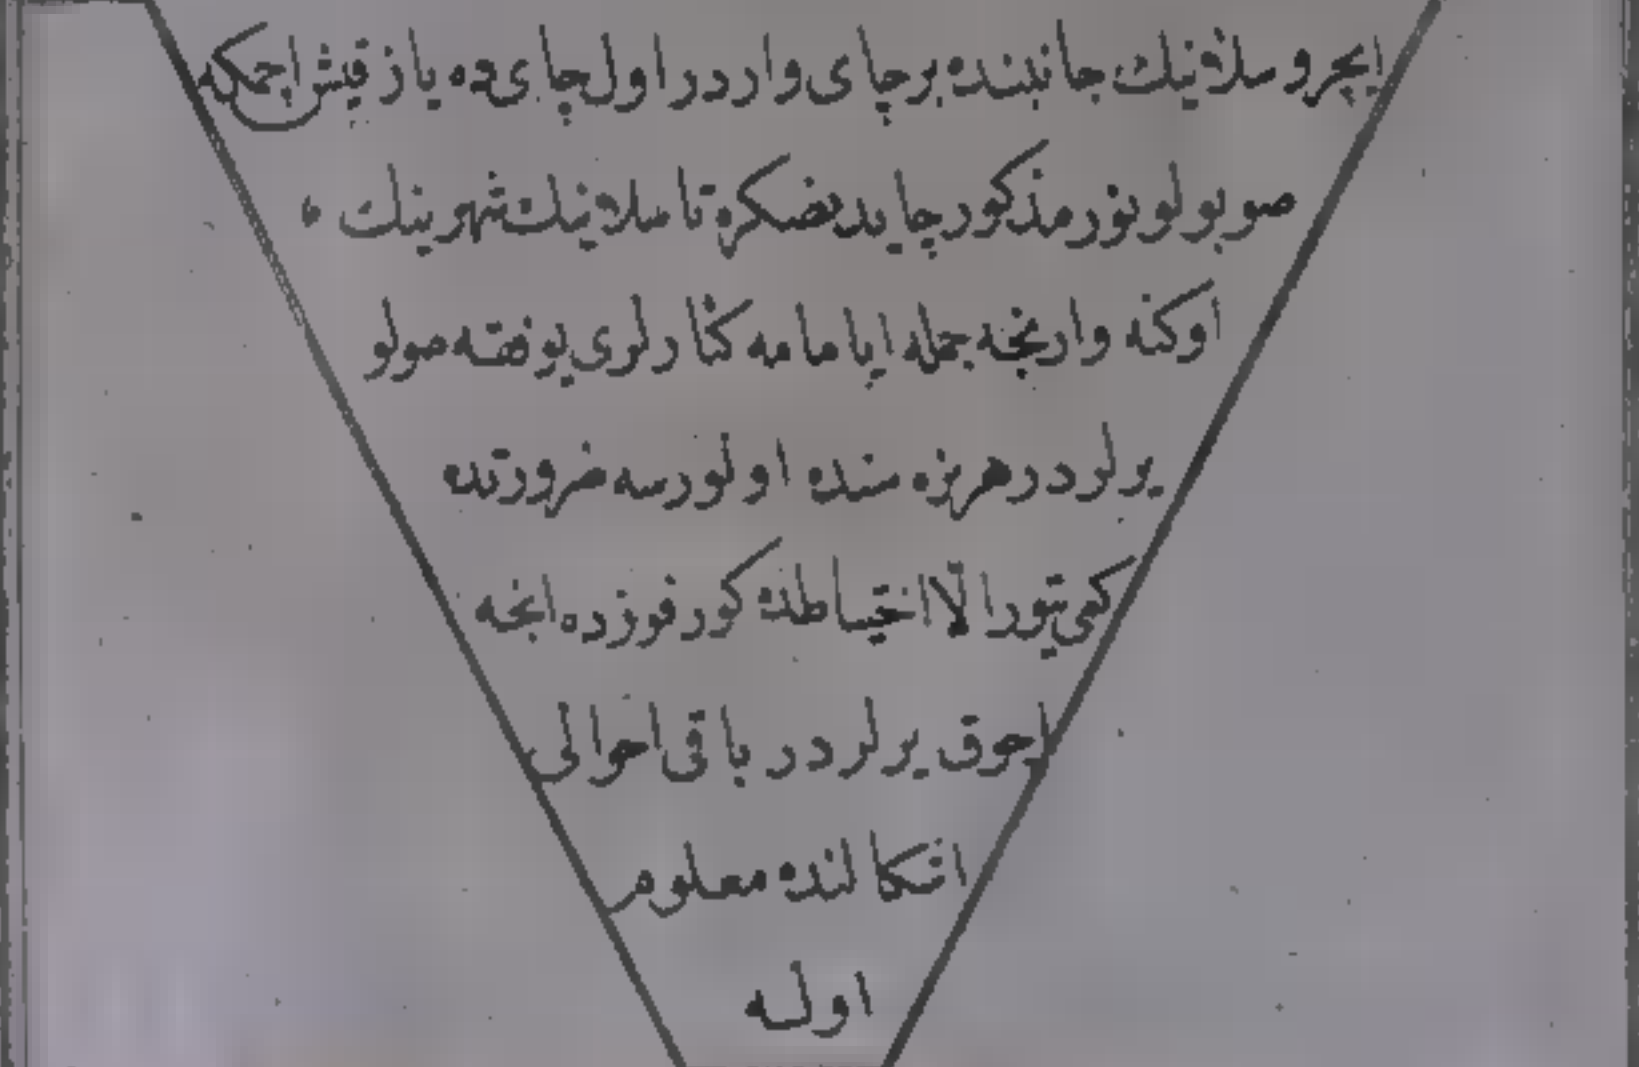 ايچرو سلانيك جانبنده بر چاى واردر اول چاى ده ياز قيش اچمكه
صو بولونور مذكور چايدنصكره تا سلانيك شهرينك
اوكنه وارنجه جمله اياما مه كنارلرى يوفقه صولو
يرلردر هر نره سنده اولورسه ضرورتده
كمى يتور الّا احتياطلق كورفوزده اينجه
اچوق يرلردر باقى احوالى
اشكالنده معلوم
اوله